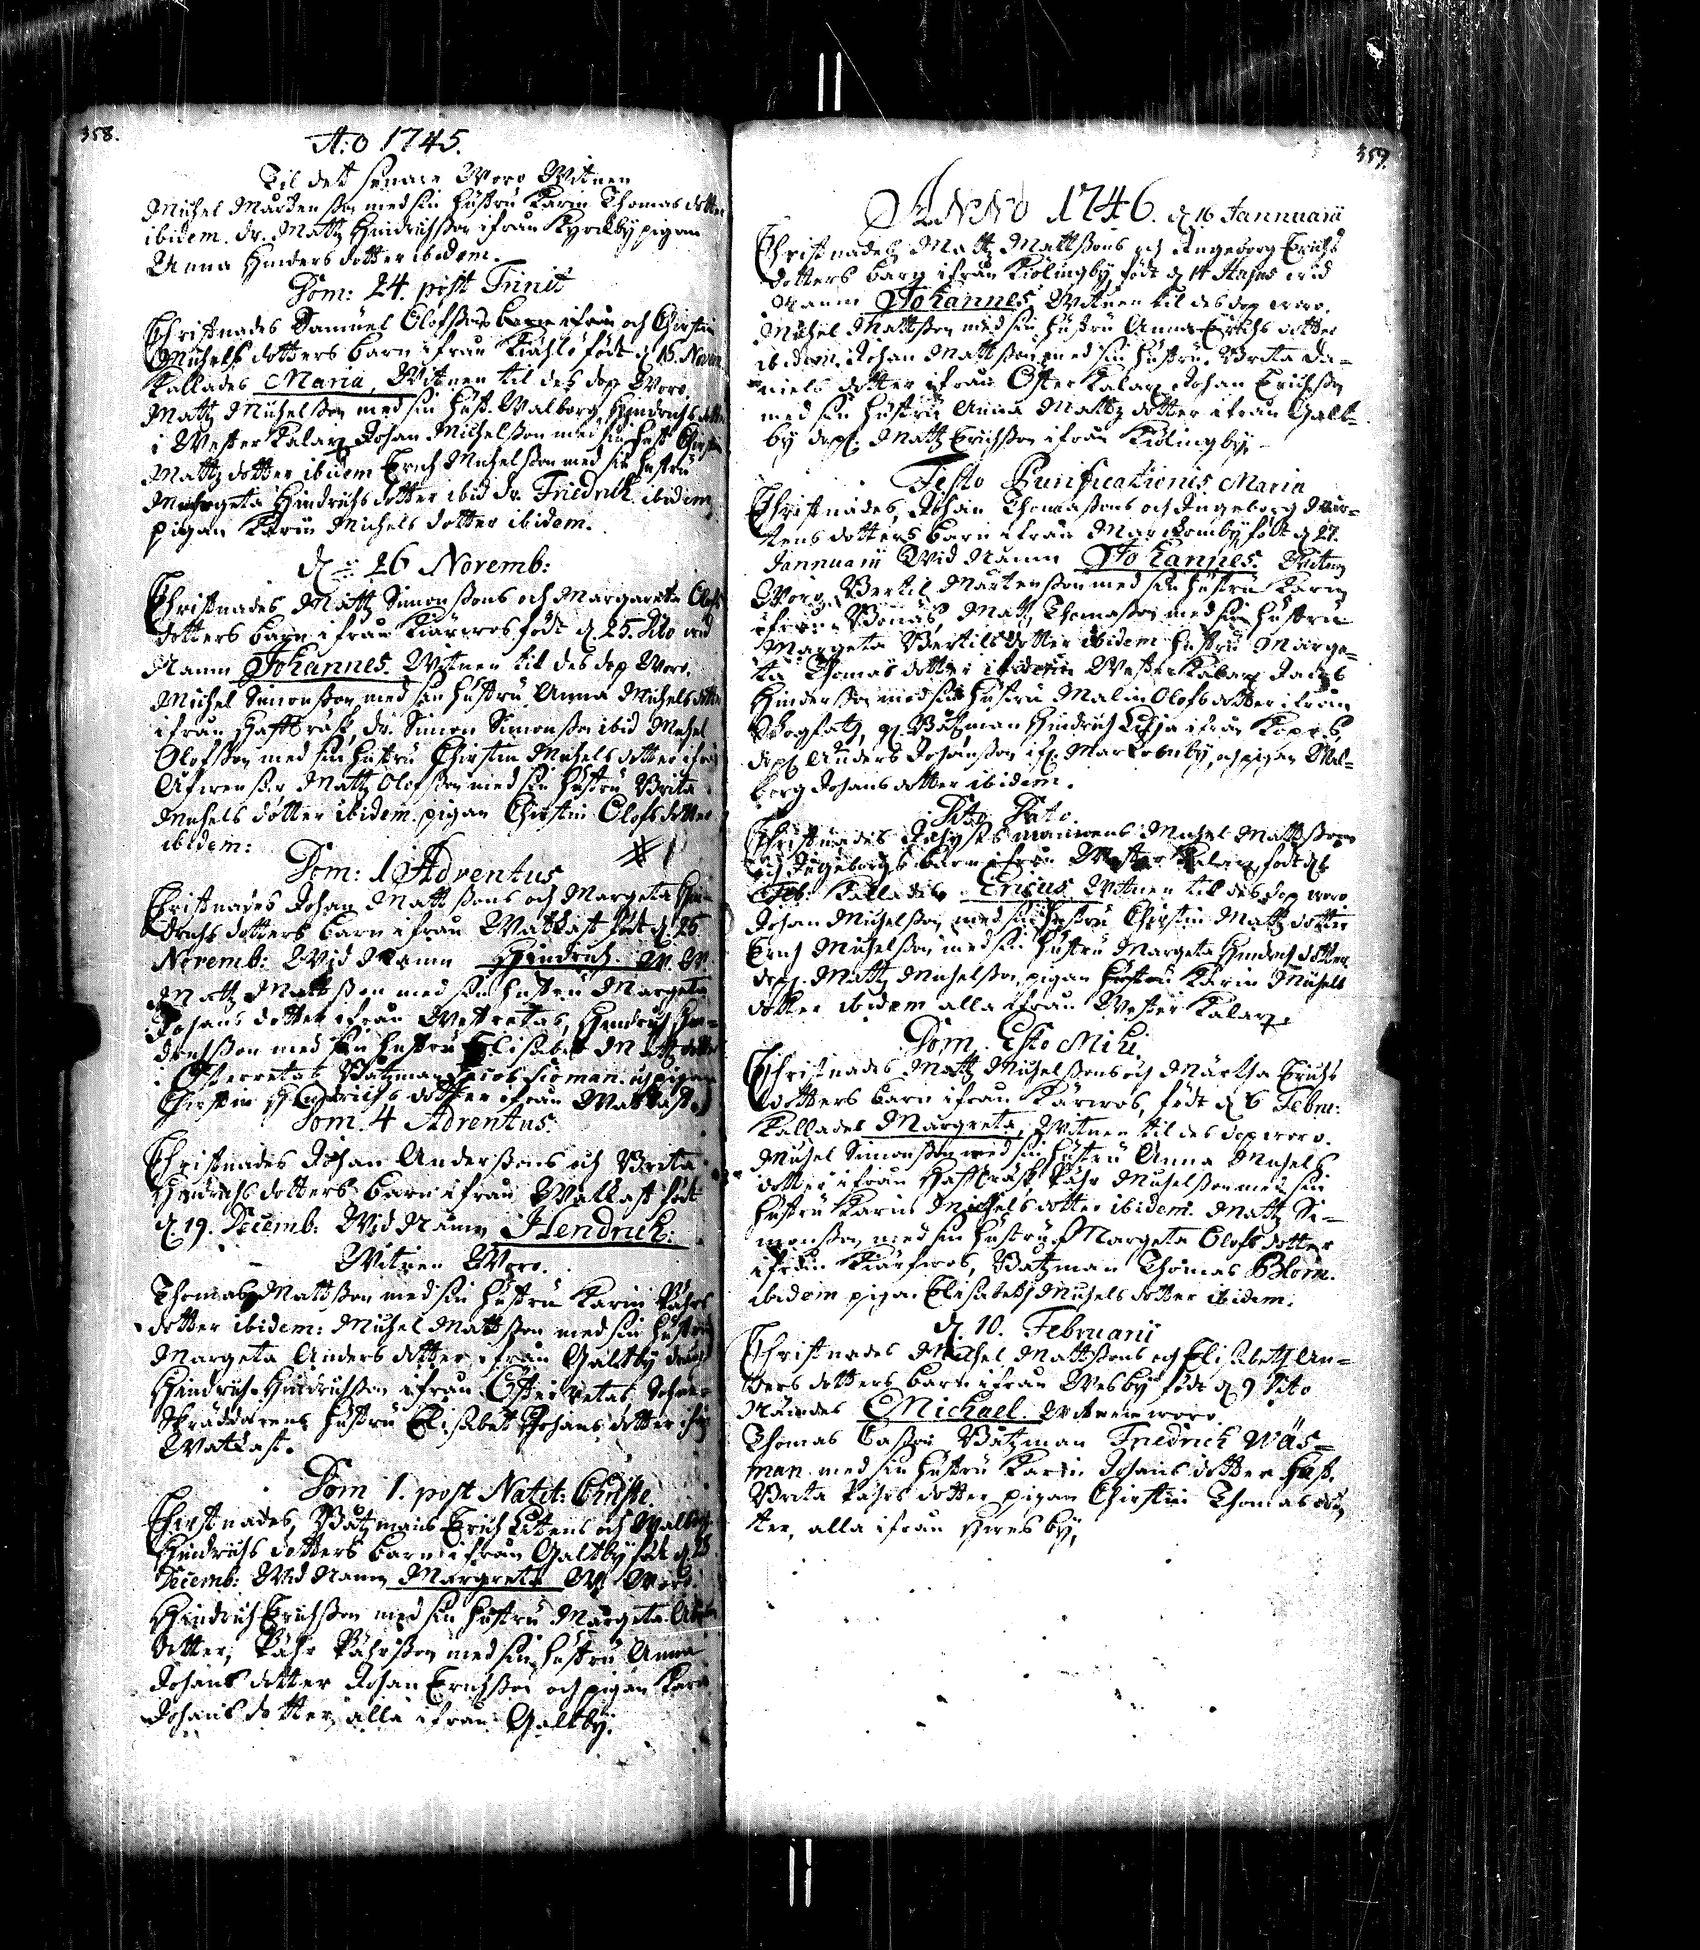 358.
A:o 1745.
Til dett senare Woro Witnen
Michel Mårtensson med sin hustru Karin Thomas dotter
ibidem. dr. Matz Hindrichsson ifrån Kyrckby pigan
Anna Hinders dotter ibidem.
Dom: 24. post Trinit
Christnades Samuel Olofssons och Chirstin
Michels dotters barn ifrån födt d 15. Novem
kallades Maria, Witnen til des dop Woro
Matz Michelsson med sin hust. Walborg Hindrichs dotter
i Wester Kalax Johan Michelsson med sin hust Chirstin
Matz dotter ibidem Erich Michelsson med sin hustru
Margeta Hindrichs dotter ibid dr. Friedrich ibidem
pigan Karin Michels dotter ibidem.
d 26 Novemb:
Christnades Matz Simonssons och Margareta Olofs
dotters barn ifrån födt d. 25. dito wid
Namn Johannes. Witnen til des dop Woro.
Michel Simonsson med sin hustru Anna Michels dotter
ifrån dr. Simon Simonsson ibid Michel
Olofsson med sin hustru Chirstin Michels dotter ifrån
Matz Olofsson med sin hustru Brita
Michels dotter ibidem. pigan Chirstin Olofs dotter
ibidem:
Dom: 1 Adventus
Christnades Johan Mattssons och Margeta Hin-
drichs dotters barn ifrån Watkast födt d. 25
Novemb: Wid Namn Hindrich. W. W.
Matz Mattsson med sin hustru Margeta
Johans dotter ifrån Westeretas, Hindrich Hin-
drichsson med sin hustru Elisabet Matz dotter
i Österretas Båtzman Jacob och pigan
Chirstin Hindrichs dotter ifrån Watkast.
Dom. 4 Adventus.
Christnades Johan Anderssons och Brita
Hindrichs dotters barn ifrån Watkast födt
d. 19. Decemb: Wid Namn Hendrich.
Witnen Woro.
Thomas Mattsson med sin hustru Karin Påhrs
dotter ibidem: Michel Mattsson med sin hustru
Margeta Anders dotter ifrån Galtby
Hindrich Hindrichsson ifrån Österretas,
Skräddarens hustru Elisabet Johans dotter ifrån
Watkast.
Dom 1. post Natit: Christi.
Christnades, Båtzmans Erich Litens och Walborg
Hindrichs dotters barn ifrån Galtby födt d 23
Decemb: Wid Namn Margreta W Woro
Hindrich Erichsson med sin hustru Margeta
dotter, Påhr Påhrsson med sin hustru Anna
Johans dotter Johan Erichsson och pigan Karin
Johans dotter, alla ifrån Galtby.
359.
ANNO 1746. d 16 Jannuarii
Christnades Matz Mattssons och Ingeborg Erichs
dotters barn ifrån Kiölingby födt d 14 wid
Namn Johannes Witnen til des dop woro.
Michel Mattsson med sin hustru Anna Erichs dotter
ibidem. Johan Mattsson med sin hustru Brita Da-
niels dotter ifrån Öster Kalax Johan Erichsson
med sin hustru Anna Mattz dotter ifrån Galt-
by Matz Erichsson ifrån Kiölingby.
Festo Purificationis Maria
Christnades, Johan Thomassons och Ingeborg Mår-
tens dotters barn ifrån Marckomby födt d 27.
Jannuarii Wid Namn Johannes. Witnen
Woro. Bertil Mårtensson med sin hustru Karin
ifrån Bonäs, Matz Thomasson med sin hustru
Margeta Bertils dotter ibidem hustru Marge-
ta Thomas dotter Wester Kalax Jacob
Hindersson med sin hustru Malin Olofs dotter ifrån
Båtzman Hindrich ifrån
Anders Johansson ifr. Markomby, och pigan Wal-
borg Johans dotter ibidem.
Dito Dito.
Christnades Michel Mattssons
och Ingeborgs barn ifrån Wester Kalax födt d
Feb: kallades Ericus. Witnen till des dop woro.
Johan Michelsson med sin hustru Chirstin Matz dotter
Erich Michelsson med sin hustru Margeta Hindrichs dotter
Matz Michelsson, pigan Karin Michels
dotter ibidem alla ifrån Wester Kalax.
Dom. Esto Mihi.
Christnades Matz Michelssons och Märtha Erichs
dotters barn ifrån födt d 6 Febru:
kallades Margreta, Witnen til des dop woro.
Michel Simonsson med sin hustru Anna Michels
dotter ifrån Påhr Michelsson med sin
hustru Karin Michels dotter ibidem. Matz Si-
monsson med sin hustru Margeta Olofs dotter
ifrån Båtzman Thomas Blom.
ibidem pigan Elisabeth Michels dotter ibidem.
d. 10. Februarii
Christnades Michel Mattssons och Elisabeth An-
ders dotters barn ifrån Wesby födt d 9 dito
Nämdes Michael. Witnen woro.
Thomas Båtzman Friedrich Wäs-
man med sin hustru Karin Johans dotter hust.
Brita Påhrs dotter pigan Chirstin Thomas dot-
ter, alla ifrån